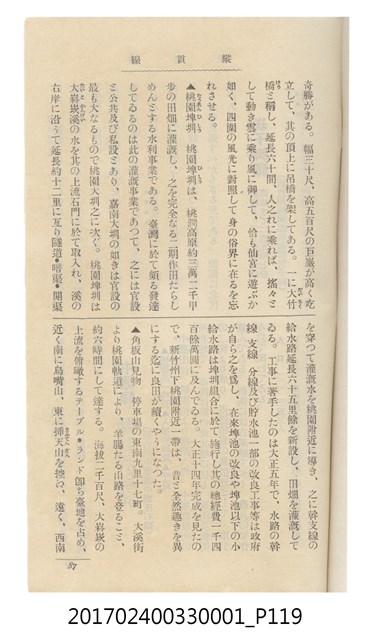 線貫縱
奇勝がある。幅三十尺、高五百尺の石巖が高く屹
立して、其の頂上に吊橋を架してある。一に大竹
橋と稱し、延長六十間、人之れに乘れば、搖々と
して動き雲に乘り風に御して、恰も仙宮に遊ぶか
如く、四圍の風光に對照して身の俗界に在るを忘
れさせる。
▲桃園埤圳 桃園埤圳は、桃澗高原約三萬二千甲
步の田畑に灌漑し、之を完全なる二期作田たらし
めんとする水利事業である。臺灣に於て頗る發達
してゐるのは此の灌漑事業であつて、之には官設
と公共及び私設とあり、嘉南大圳の如きは官設の
最も大なるもので桃園大圳之に次ぐ。桃園埤圳は
大嵙崁溪の水を其の上流石門に於て取入れ、溪の
右岸に沿うて延長約十二里に亙り隧道・暗渠・開渠
を穿つて灌漑水を桃園附近に導き、之に幹支線の
給水路延長六十五里餘を新設し、田畑を灌漑して
ゐる。工事に著手したのは大正五年で、水路の幹
線 支線 分線及び貯水池一部の改良工事等は政府
が自ら之を爲し、在來埤池の改良や埤池以下の小
給水路は埤圳組合に於て施行し其の總經費一千四
百餘萬圓に及んでゐる。大正十四年完成を見たの
で、新竹州下桃園附近一帶は、昔と全然趣きを異
にする迄に良田が續くやうになつた。
▲角板山見物 停車場の東南九里十七町。大溪街
より桃園軌道により、羊腸たる山路を登ること、
約六時間にして達する。海拔二千百尺、大嵙崁の
上流を俯瞰するテーブル・ランド卽ち臺地を占め、
近く南に鳥嘴山、東に插天山を擁み、遠く、西南
87
201702400330001_P119